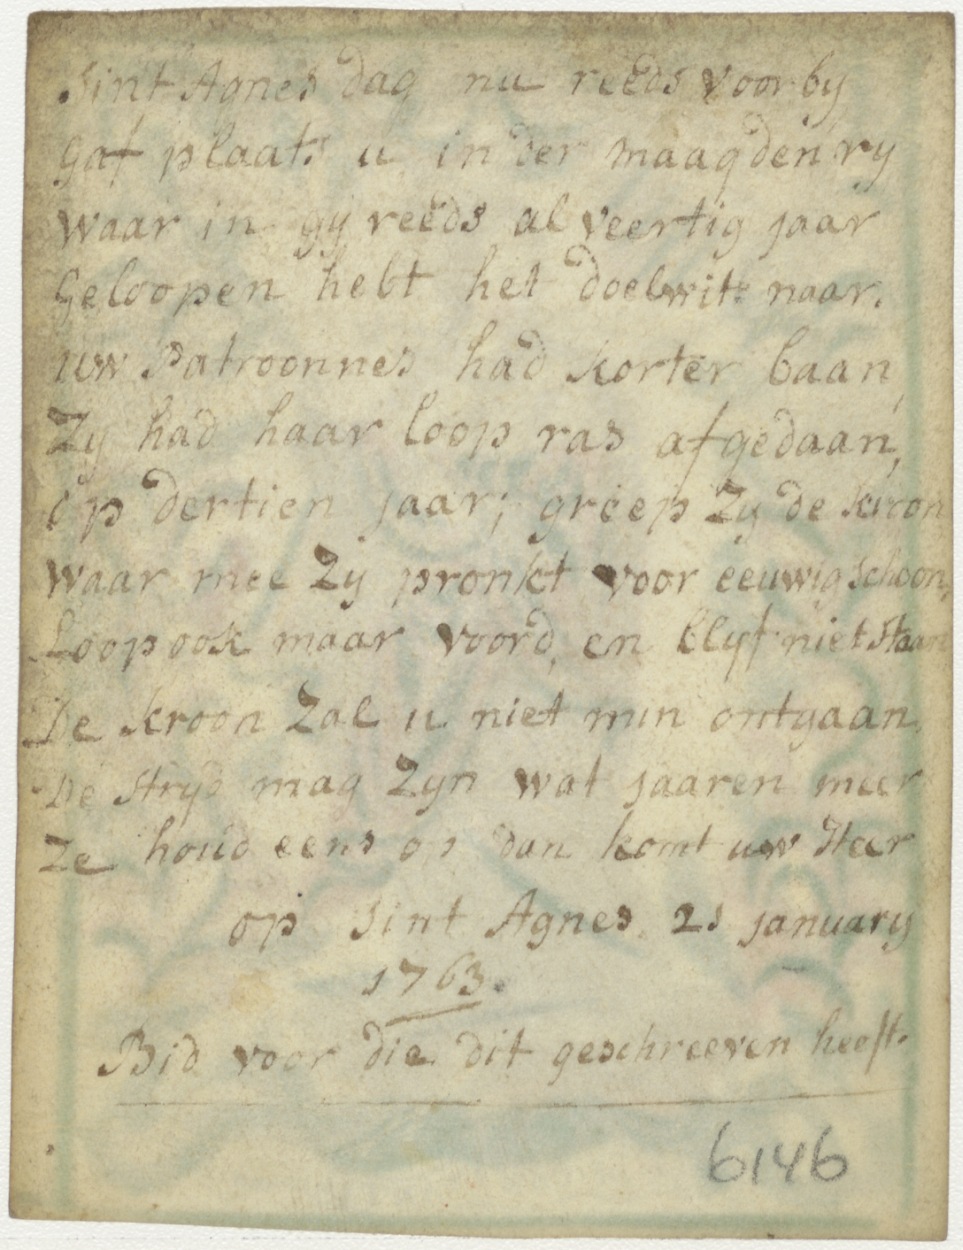 Sint Agnes dag nu reeds voorby
Gaf plaats u in der maagden ry
waar in gy reeds al veertig jaar
Geloopen hebt het doelwit naar.
uw Patroonnes had korter baan,
Zy had haar loop ras afgedaan,
op dertien jaar; greep Zy de kroon
waar mee Zy pronkt voor eeuwig schoon,
Loop ook maar voord, en blyf niet staan
De kroon Zal u niet min ontgaan.
De stryd mag Zyn wat jaaren meer
Ze houd eens op dan komt uw Heer
op Sint Agnes. 21 january
1763.
Bid voor die dit geschreeven heeft.
6146